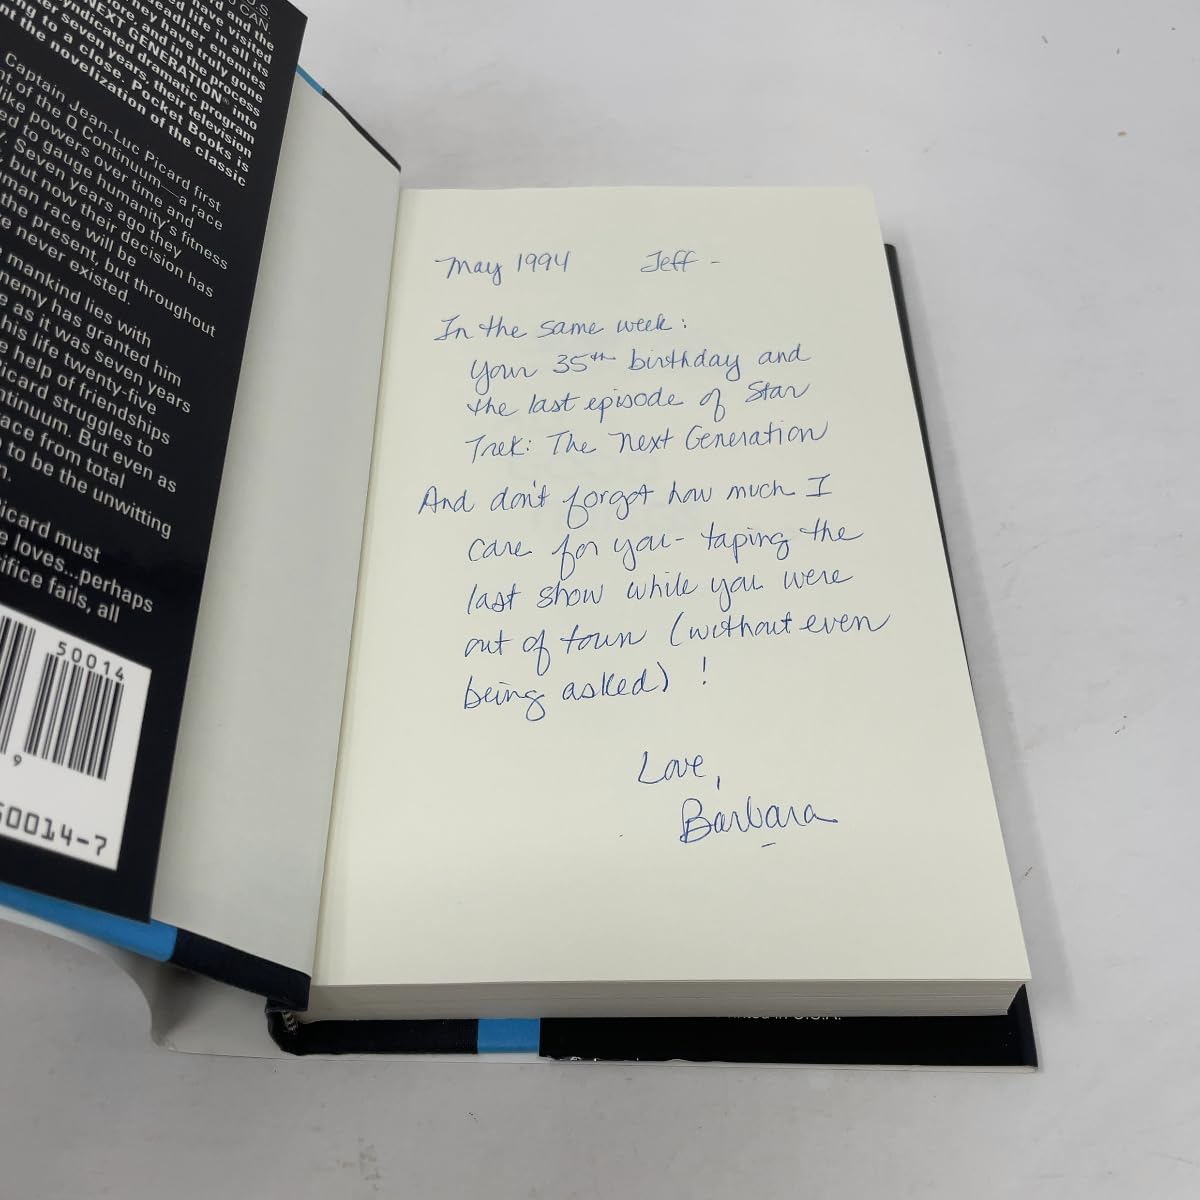 U.S.
CAN.
rd and the
have visited
d life in all its
deadlier enemies
ore, and in the process
they have truly gone
NEXT GENERATION® into
syndicated dramatic program
er seven years, their television
ng to a close. Pocket Books is
nt the novelization of the classic
Captain Jean-Luc Picard first
nt of the Q Continuum—a race
like powers over time and
ed to gauge humanity's fitness
Seven years ago they
, but now their decision has
man race will be
the present, but throughout
e never existed.
mankind lies with
nemy has granted him
e as it was seven years
his life twenty-five
e help of friendships
icard struggles to
ntinuum. But even as
ace from total
to be the unwitting
n.
icard must
e loves...perhaps
ifice fails, all
50014
9
50014-7
May 1994 Jeff -
In the same week:
Your 35th birthday and
the last episode of Star
Trek: The Next Generation
And don't forgot how much I
care for you- taping the
last show while you were
out of town (without even
being asked) !
Love,
Barbara
nted in U.S.A.